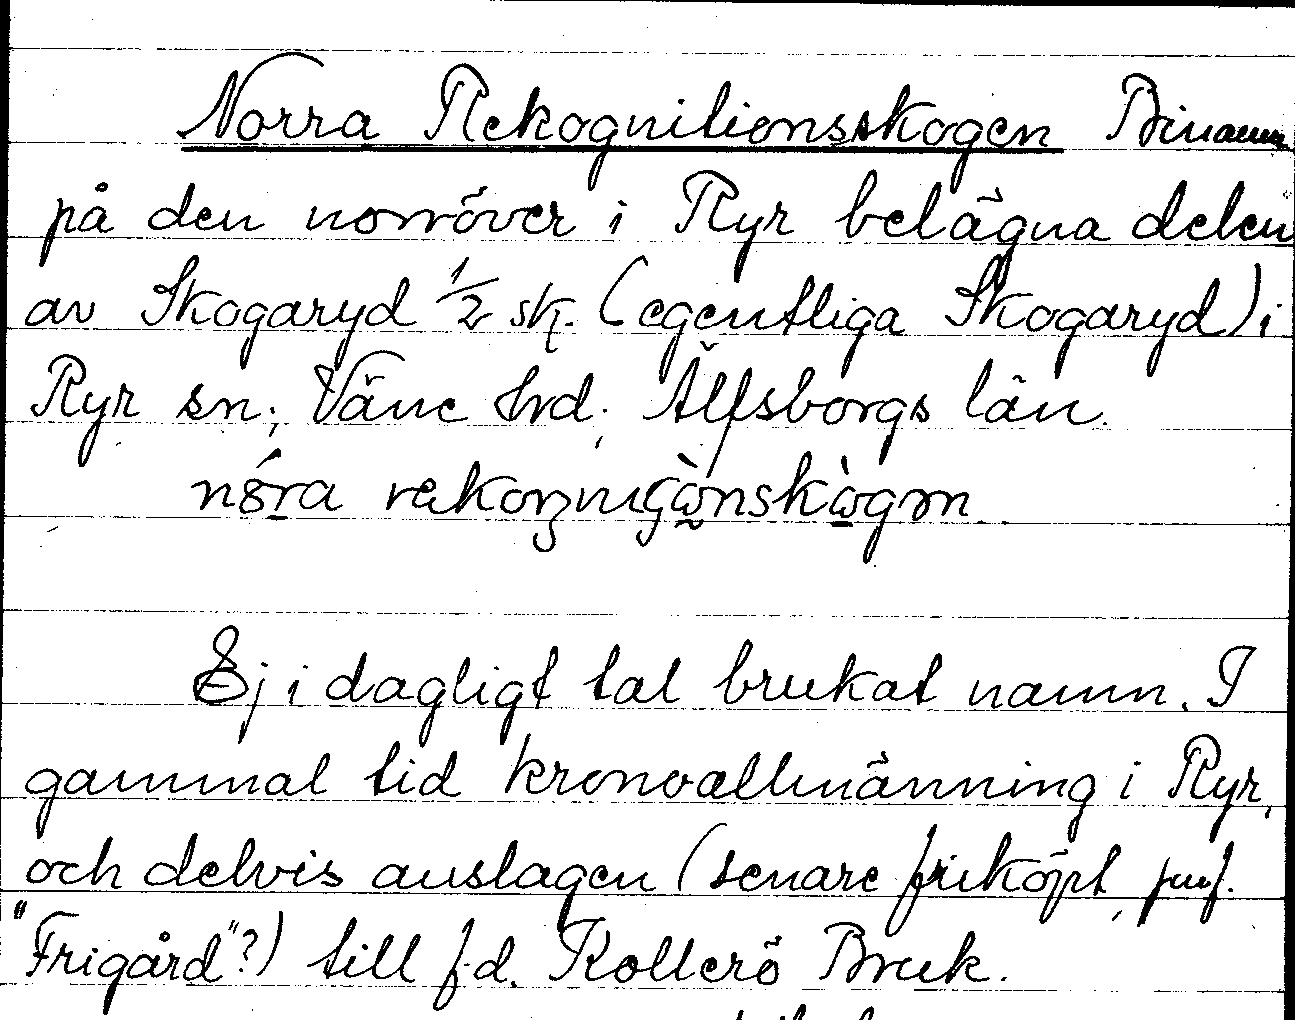 Norra Rekognitionsskogen Binamn
på den norröver i Ryr belägna delen
av Skogaryd 1/2 sk. (egentliga Skogaryd) i
Ryr sn; Väne hrd; Älfsborgs län.
nǫ́ra
Ej i dagligt tal brukat namn. I
gammal tid kronoallmänning i Ryr,
och delvis anslagen (senare friköpt, jmf.
"Frigård"?) till f.d. Kollerö Bruk.